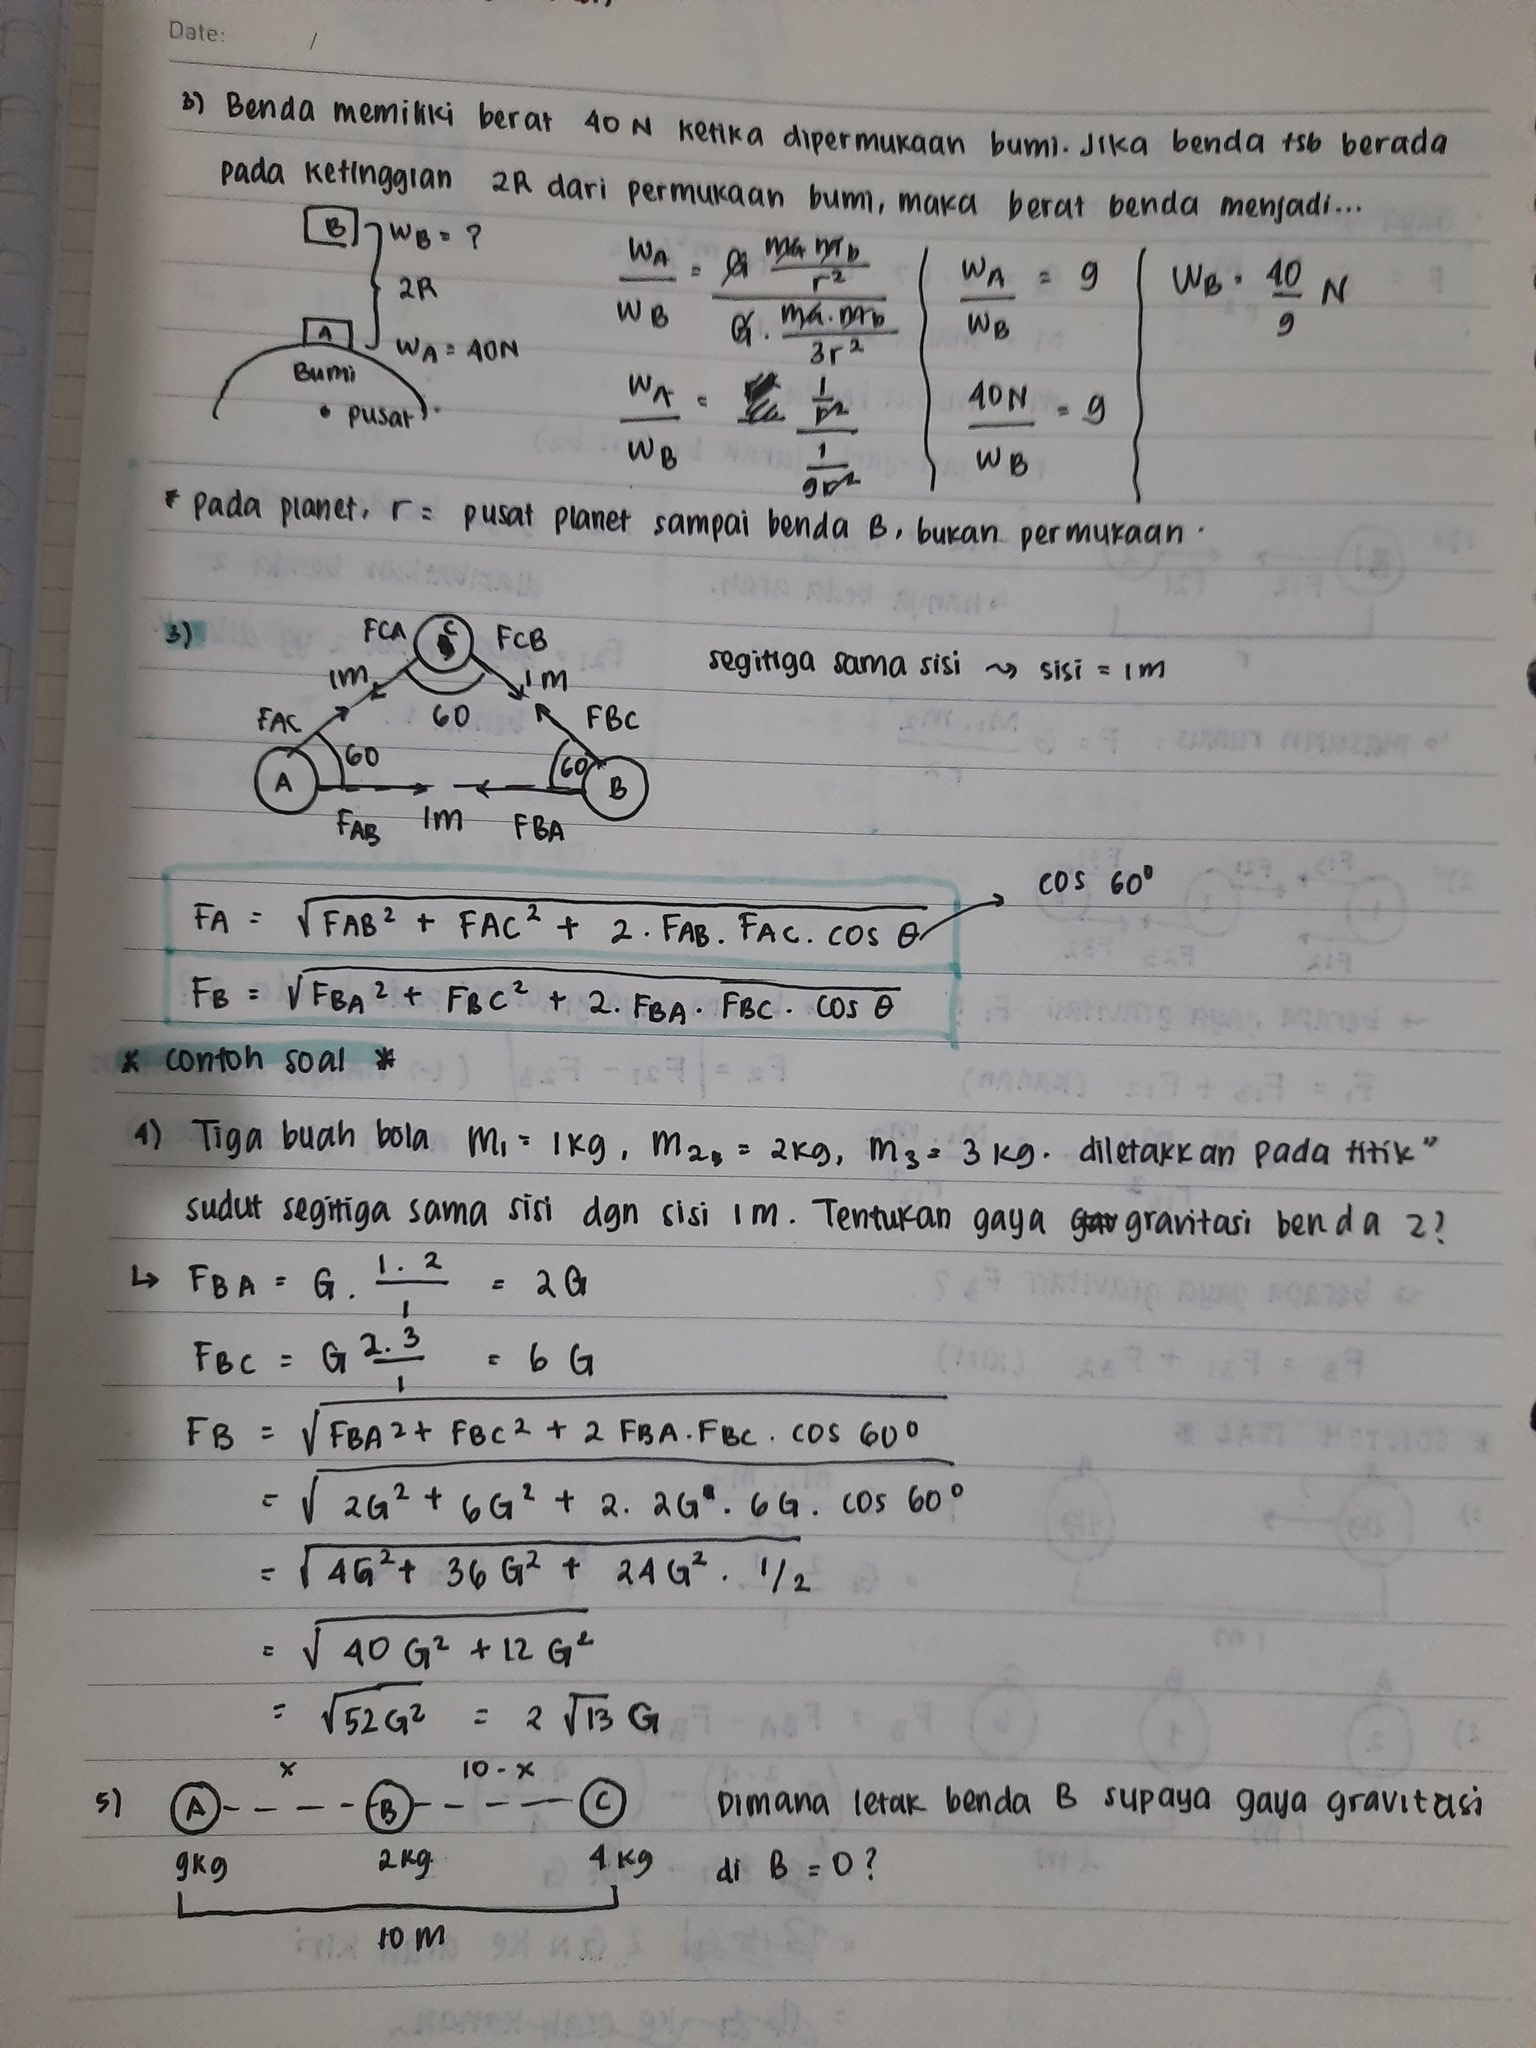 Date: /
3) Benda memiliki berat 40 N ketika dipermukaan bumi. Jika benda tsb berada
pada ketinggian 2R dari permukaan bumi, maka berat benda menjadi...
B WB = ?
2R
A WA = 40N
Bumi
• pusat
WA/WB = G ma mb/r² / G. ma.mb/3r²
WA/WB = 1/r² / 1/9r²
WA/WB = 9
40N/WB = 9
WB = 40/9 N
* pada planet, r = pusat planet sampai benda B, bukan permukaan.
3)
C
FCA FCB
1M 1M
60
FAC FBC
60 60
A B
FAB 1M FBA
segitiga sama sisi ⤳ sisi = 1m
FA = √FAB² + FAC² + 2. FAB. FAC. cos θ → cos 60°
FB = √FBA² + FBC² + 2. FBA. FBC. cos θ
* contoh soal *
4) Tiga buah bola m1 = 1kg, m2 = 2kg, m3 = 3 kg. diletakkan pada titik"
sudut segitiga sama sisi dgn sisi 1m. Tentukan gaya gravitasi benda 2?
↳ FBA = G. 1.2/1 = 2G
FBC = G 2.3/1 = 6 G
FB = √FBA² + FBC² + 2 FBA.FBC. cos 60°
= √2G² + 6G² + 2. 2G. 6G. cos 60°
= √4G² + 36 G² + 24G². 1/2
= √40 G² + 12 G²
= √52G² = 2 √13 G
x 10-x
5) A - - - - B - - - - C Dimana letak benda B supaya gaya gravitasi
9kg 2kg 4 kg di B = 0?
10 M